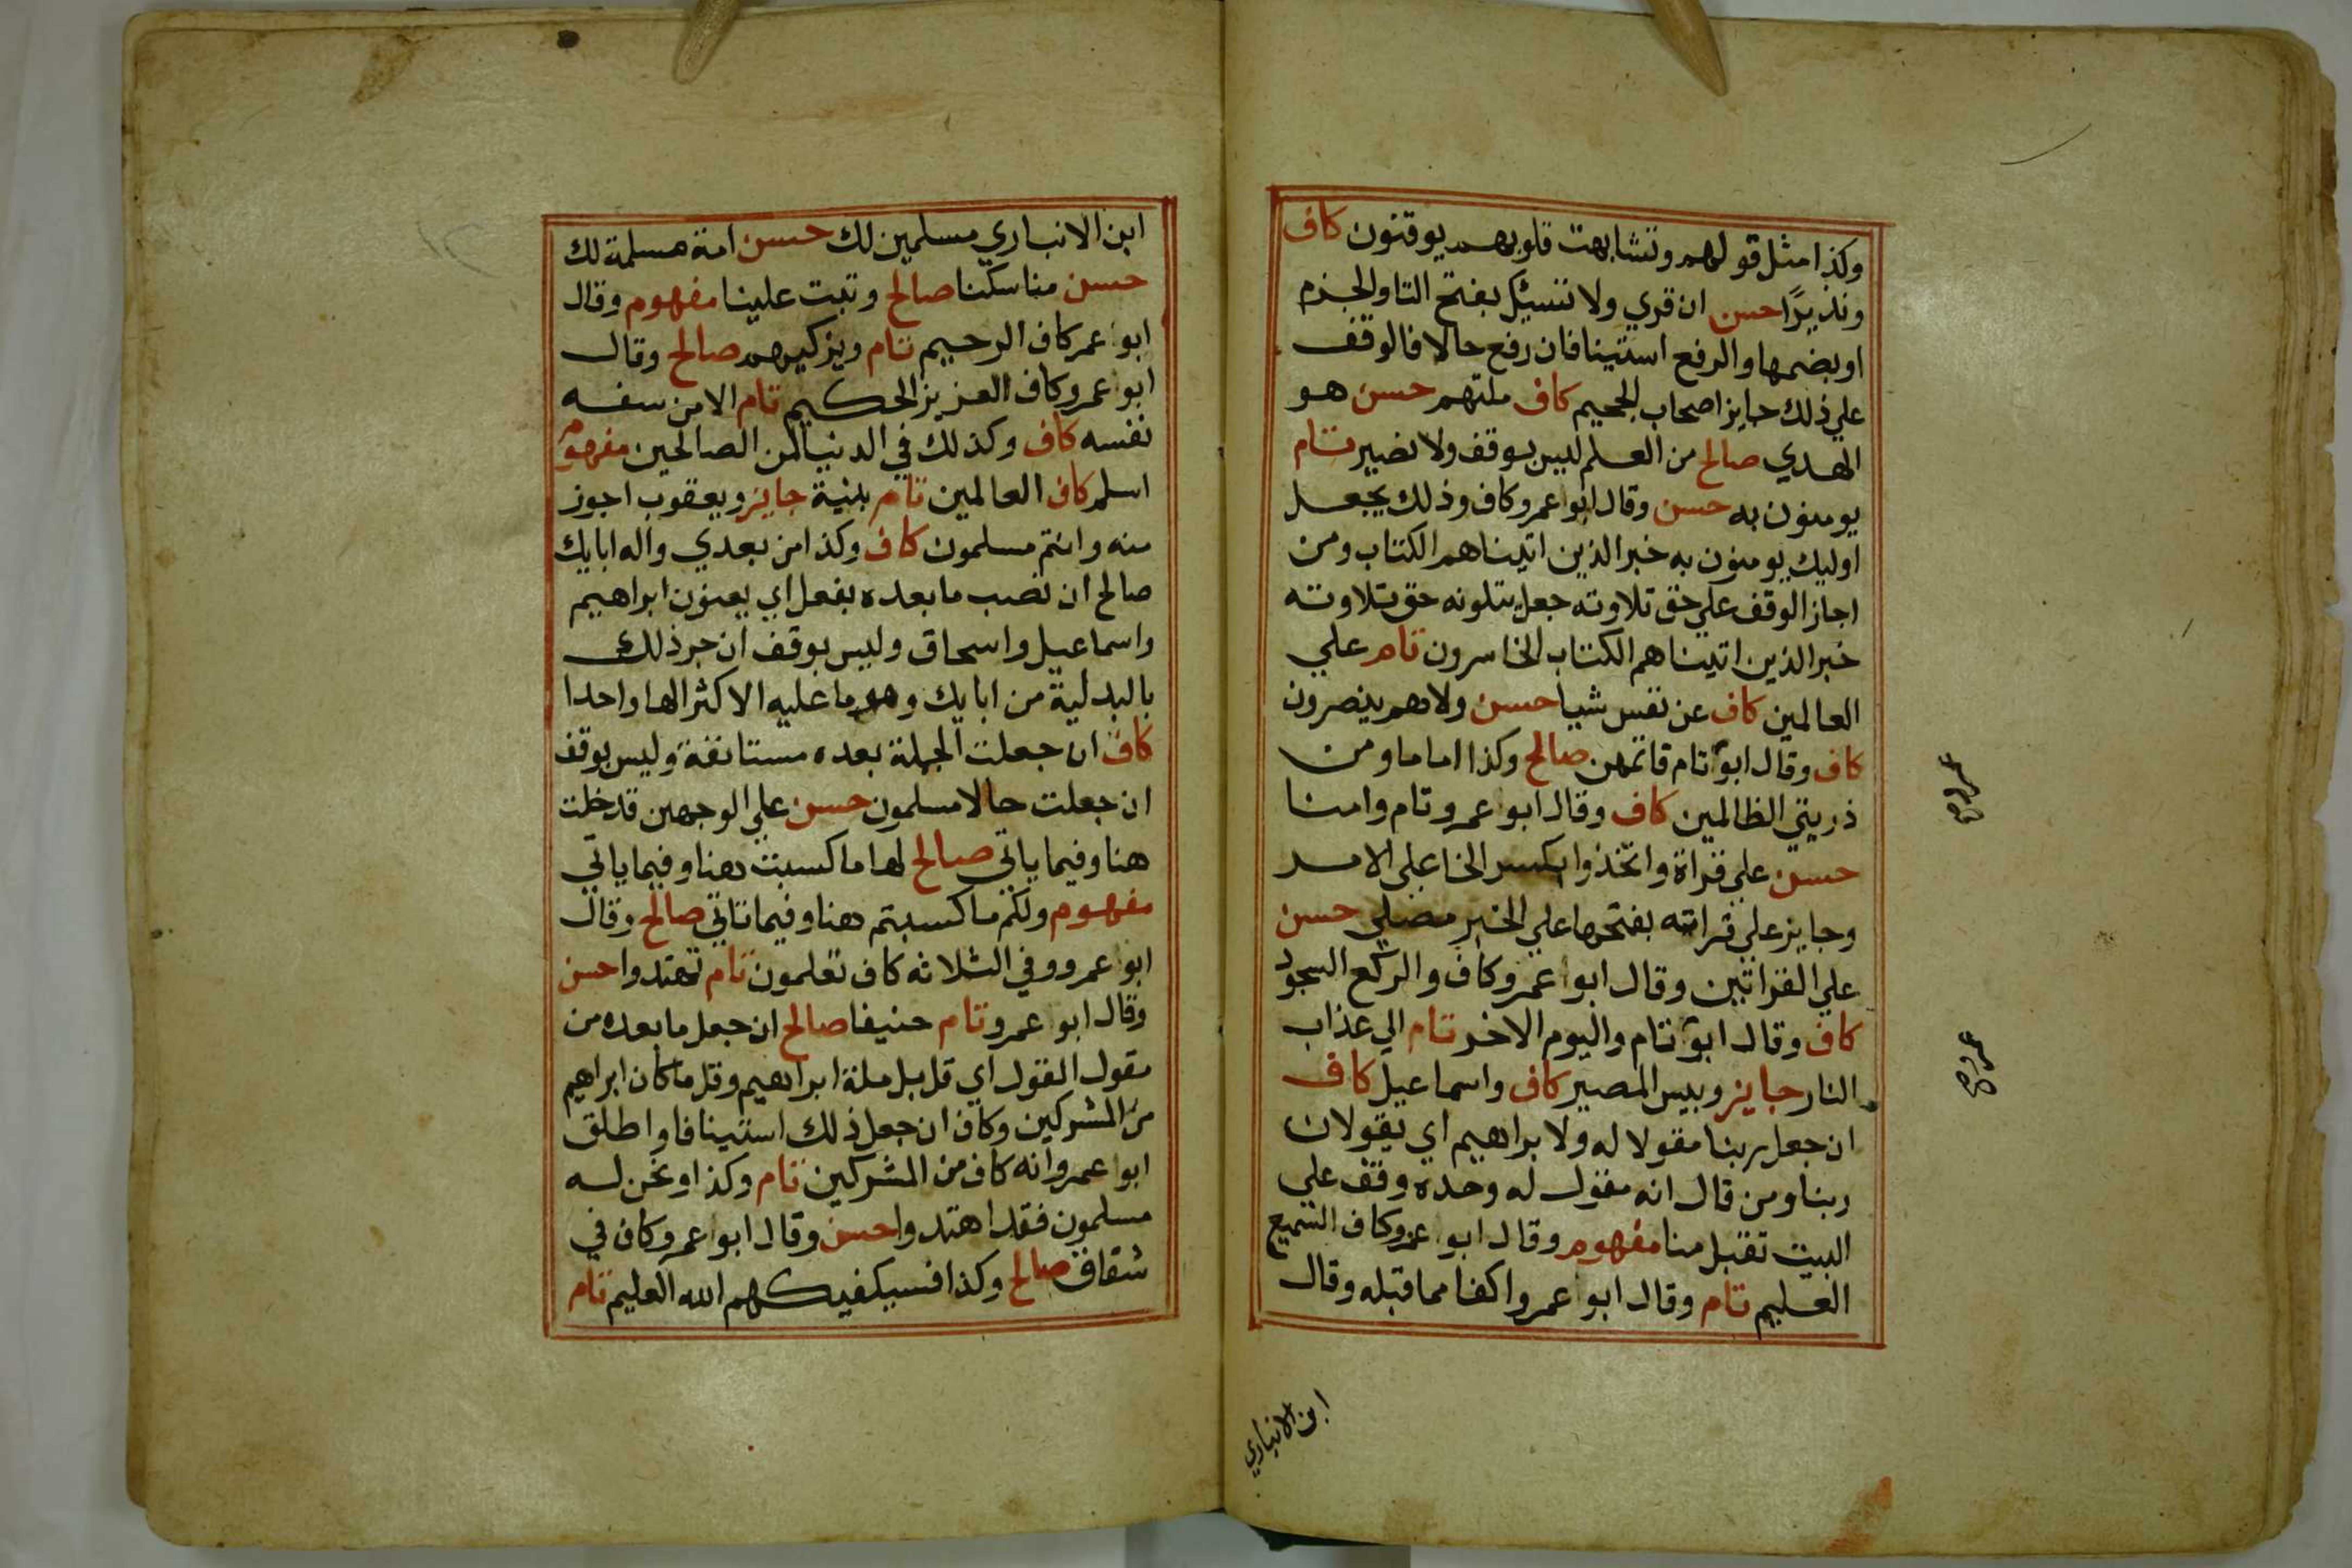 وكذا مثل قولهم وتشابهت قلوبهم يوقنون كاف
ونذيرًا حسن ان قري ولا تسئل بفتح التا والجزم
او بضمها والرفع استينافا فان رفع حالا فالوقف
علي ذلك جايز اصحاب الجحيم كاف ملتهم حسن هو
الهدي صالح من العلم ليس بوقف ولا نصير تام
يومنون به حسن وقال ابو عمرو كاف وذلك بجعل
اوليك يومنون به خبر الذين اتيناهم الكتاب ومن
اجاز الوقف علي حق تلاوته جعل يتلونه حق تلاوته
خبر الذين اتيناهم الكتاب الخاسرون تام علي
العالمين كاف عن نفس شيا حسن ولا هم ينصرون
كاف وقال ابو تام فاتمهن صالح وكذا اماما ومن
ذريتي الظالمين كاف وقال ابو عمرو تام وامنا
حسن علي قراة واتخذوا بكسر الخا علي الامر
وجايز علي قراته بفتحها علي الخبر مصلي حسن
علي القراتين وقال ابو عمرو كاف والركع السجود
كاف وقال ابو تام واليوم الاخر تام الي عذاب
النار جايز وبيس المصير كاف واسماعيل كاف
ان جعل ربنا مقولا له ولابراهيم اي يقولان
ربنا ومن قال انه مقول له وحده وقف علي
البيت تقبل منا مفهوم وقال ابو عمرو كاف السميع
العليم تام وقال ابو عمرو اكفا مما قبله وقال
عمرو صح
عمرو صح
ابن الانباري
ابن الانباري مسلمين لك حسن امة مسلمة لك
حسن مناسكنا صالح وتبت علينا مفهوم وقال
ابو عمر كاف الرحيم تام ويزكيهم صالح وقال
ابو عمرو كاف العزيز الحكيم تام الا من سفه
نفسه كاف وكذلك في الدنيا لمن الصالحين مفهوم
اسلم كاف العالمين تام بنيه جايز ويعقوب اجوز
منه وانتم مسلمون كاف وكذا من بعدي واله ابايك
صالح ان نصب ما بعده بفعل اي يعنون ابراهيم
واسماعيل واسحاق وليس بوقف ان جر ذلك
بالبدلية من ابايك وهو ما عليه الاكثر الها واحدا
كاف ان جعلت الجملة بعده مستانفة وليس بوقف
ان جعلت حالا مسلمون حسن علي الوجهين قد خلت
هنا وفيما ياتي صالح لها ما كسبت هنا وفيما ياتي
مفهوم ولكم ما كسبتم هنا وفيما تاتي صالح وقال
ابو عمرو وفي الثلاثه كاف تعلمون تام تهتدوا حسن
وقال ابو عمرو تام حنيفا صالح ان جعل ما بعده من
مقول القول اي قل بل ملة ابراهيم وقل ما كان ابراهيم
من المشركين وكاف ان جعل ذلك استينافا واطلق
ابو عمرو انه كاف من المشركين تام وكذا ونحن له
مسلمون فقد اهتدوا حسن وقال ابو عمرو كاف في
شقاق صالح وكذا فسيكفيكهم الله العليم تام